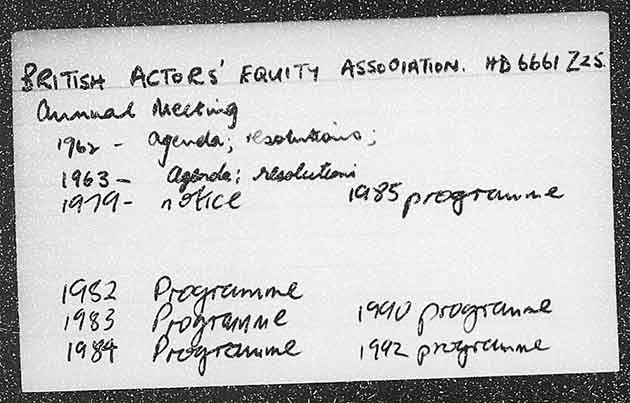 BRITISH ACTORS' EQUITY ASSOCIATION. HD6661 Z25
Annual Meeting
1962 - agenda; resolutions;
1963 - Agenda; resolutions
1979 - notice 1985 programme
1982 Programme
1983 Programme 1990 programme
1984 Programme 1992 programme